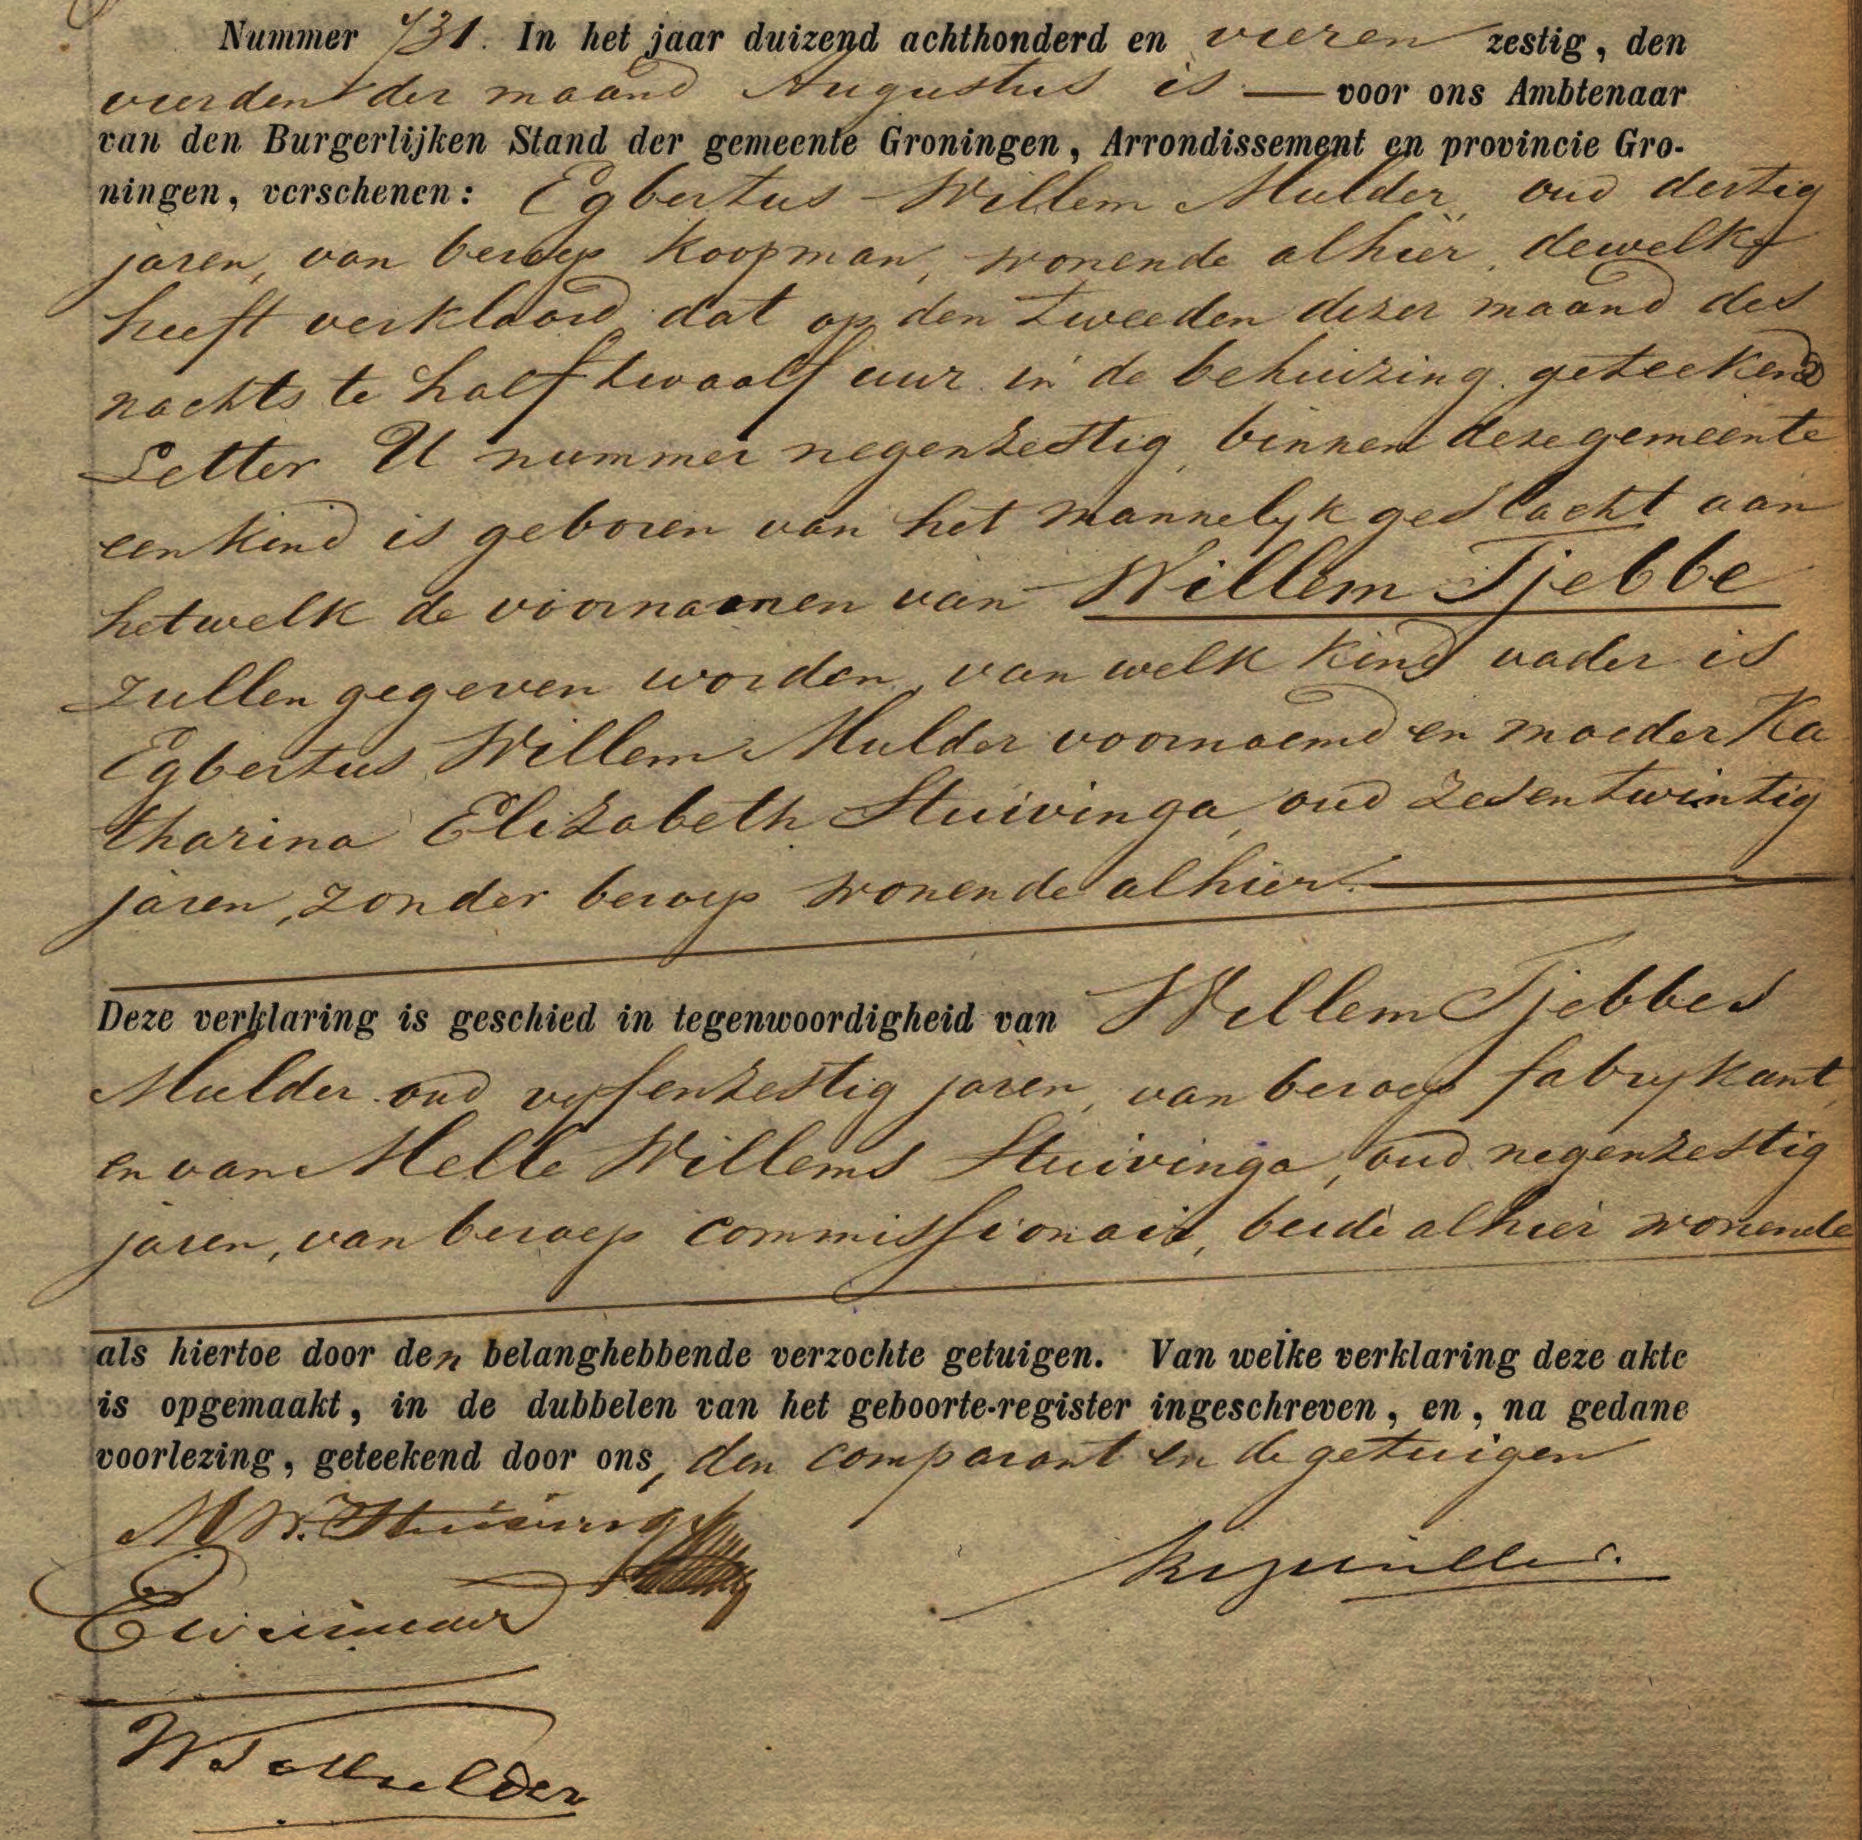 Nummer 731. In het jaar duizend achthonderd en vieren zestig, den
vierden der maand Augustus is — voor ons Ambtenaar
van den Burgerlijken Stand der gemeente Groningen, Arrondissement en provincie Gro-
ningen, verschenen: Egbertus Willem Mulder, oud dertig
jaren, van beroep koopman, wonende alhier, dewelke
heeft verklaard dat op den tweeden dezer maand des
nachts te half twaalf uur in de behuizing geteekend
Letter U nummer negenzestig, binnen deze gemeente
een kind is geboren van het mannelyk geslacht aan
hetwelk de voornamen van Willem Tjebbe
zullen gegeven worden, van welk kind vader is
Egbertus Willem Mulder voornoemd en moeder Ka
tharina Elizabeth Stuivinga, oud zesentwintig
jaren, zonder beroep wonende alhier.
Deze verklaring is geschied in tegenwoordigheid van Willem Tjebbes
Mulder oud vyfenzestig jaren, van beroep fabrykant,
en van Melle Willems Stuivinga, oud negenzestig
jaren, van beroep commissionair, beide alhier wonende
als hiertoe door den belanghebbende verzochte getuigen. Van welke verklaring deze akte
is opgemaakt, in de dubbelen van het geboorte-register ingeschreven, en, na gedane
voorlezing, geteekend door ons, den comparant en de getuigen
M W. Stuivinga
W T Mulder